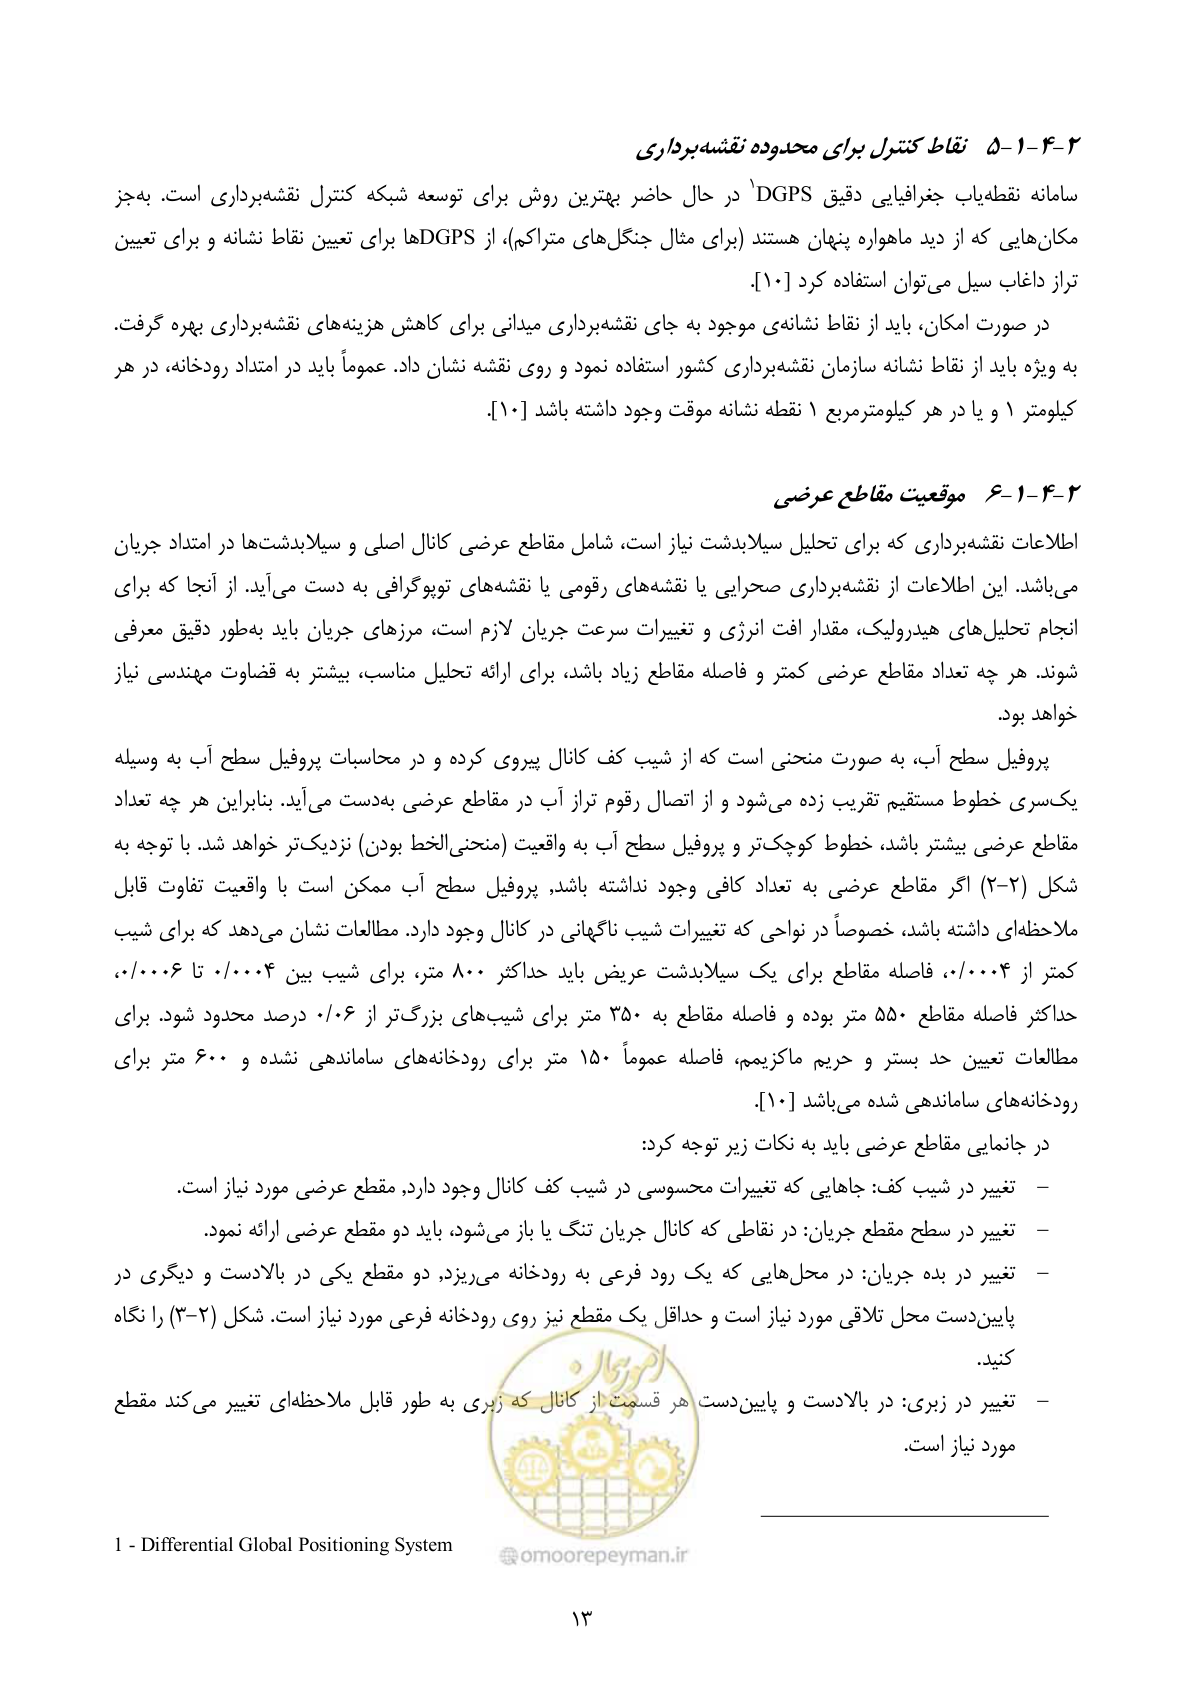 ۲-۴-۱-۵ نقاط کنترل برای محدوده نقشه‌برداری
سامانه نقطه‌یاب جغرافیایی دقیق DGPS۱ در حال حاضر بهترین روش برای توسعه شبکه کنترل نقشه‌برداری است. به‌جز
مکان‌هایی که از دید ماهواره پنهان هستند (برای مثال جنگل‌های متراکم)، از DGPSها برای تعیین نقاط نشانه و برای تعیین
تراز داغاب سیل می‌توان استفاده کرد [۱۰].
در صورت امکان، باید از نقاط نشانه‌ی موجود به جای نقشه‌برداری میدانی برای کاهش هزینه‌های نقشه‌برداری بهره گرفت.
به ویژه باید از نقاط نشانه سازمان نقشه‌برداری کشور استفاده نمود و روی نقشه نشان داد. عموماً باید در امتداد رودخانه، در هر
کیلومتر ۱ و یا در هر کیلومترمربع ۱ نقطه نشانه موقت وجود داشته باشد [۱۰].
۲-۴-۱-۶ موقعیت مقاطع عرضی
اطلاعات نقشه‌برداری که برای تحلیل سیلابدشت نیاز است، شامل مقاطع عرضی کانال اصلی و سیلابدشت‌ها در امتداد جریان
می‌باشد. این اطلاعات از نقشه‌برداری صحرایی یا نقشه‌های رقومی یا نقشه‌های توپوگرافی به دست می‌آید. از آنجا که برای
انجام تحلیل‌های هیدرولیک، مقدار افت انرژی و تغییرات سرعت جریان لازم است، مرزهای جریان باید به‌طور دقیق معرفی
شوند. هر چه تعداد مقاطع عرضی کمتر و فاصله مقاطع زیاد باشد، برای ارائه تحلیل مناسب، بیشتر به قضاوت مهندسی نیاز
خواهد بود.
پروفیل سطح آب، به صورت منحنی است که از شیب کف کانال پیروی کرده و در محاسبات پروفیل سطح آب به وسیله
یک‌سری خطوط مستقیم تقریب زده می‌شود و از اتصال رقوم تراز آب در مقاطع عرضی به‌دست می‌آید. بنابراین هر چه تعداد
مقاطع عرضی بیشتر باشد، خطوط کوچک‌تر و پروفیل سطح آب به واقعیت (منحنی‌الخط بودن) نزدیک‌تر خواهد شد. با توجه به
شکل (۲-۲) اگر مقاطع عرضی به تعداد کافی وجود نداشته باشد, پروفیل سطح آب ممکن است با واقعیت تفاوت قابل
ملاحظه‌ای داشته باشد، خصوصاً در نواحی که تغییرات شیب ناگهانی در کانال وجود دارد. مطالعات نشان می‌دهد که برای شیب
کمتر از ۰/۰۰۰۴، فاصله مقاطع برای یک سیلابدشت عریض باید حداکثر ۸۰۰ متر، برای شیب بین ۰/۰۰۰۴ تا ۰/۰۰۰۶،
حداکثر فاصله مقاطع ۵۵۰ متر بوده و فاصله مقاطع به ۳۵۰ متر برای شیب‌های بزرگ‌تر از ۰/۰۶ درصد محدود شود. برای
مطالعات تعیین حد بستر و حریم ماکزیمم، فاصله عموماً ۱۵۰ متر برای رودخانه‌های ساماندهی نشده و ۶۰۰ متر برای
رودخانه‌های ساماندهی شده می‌باشد [۱۰].
در جانمایی مقاطع عرضی باید به نکات زیر توجه کرد:
– تغییر در شیب کف: جاهایی که تغییرات محسوسی در شیب کف کانال وجود دارد, مقطع عرضی مورد نیاز است.
– تغییر در سطح مقطع جریان: در نقاطی که کانال جریان تنگ یا باز می‌شود، باید دو مقطع عرضی ارائه نمود.
– تغییر در بده جریان: در محل‌هایی که یک رود فرعی به رودخانه می‌ریزد, دو مقطع یکی در بالادست و دیگری در
پایین‌دست محل تلاقی مورد نیاز است و حداقل یک مقطع نیز روی رودخانه فرعی مورد نیاز است. شکل (۲-۳) را نگاه
کنید.
– تغییر در زبری: در بالادست و پایین‌دست هر قسمت از کانال که زبری به طور قابل ملاحظه‌ای تغییر می‌کند مقطع
مورد نیاز است.
امور پیمان
1 - Differential Global Positioning System
@omoorepeyman.ir
۱۳